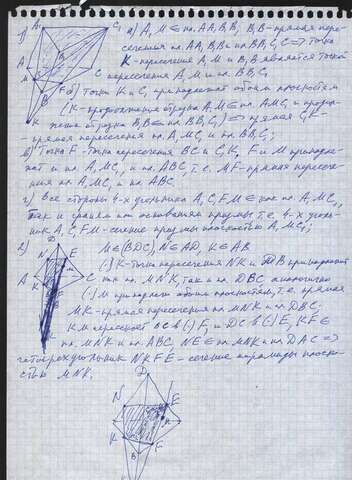 1) а) A₁M ∈ пл. AA₁B₁B, B₁B - прямая пере-
сечения пл. AA₁B₁B и пл. BB₁C₁C ⇒ Точка
K - пересечения A₁M и B₁B является точкой
пересечения A₁M и пл. BB₁C₁
б) Точки K и C₁ принадлежат обоим плоскостям
(K - продолжения отрезка A₁M ∈ пл. A₁MC₁ и продол-
жения отрезка BB₁ ∈ пл. BB₁C₁) ⇒ прямая C₁K -
- прямая пересечения пл. A₁MC₁ и пл. BB₁C₁;
в) Точка F - точка пересечения BC и C₁K, F и M принадле-
жат и пл. A₁MC₁, и пл. ABC, т.е. MF - прямая пересече-
ния пл. A₁MC₁ и пл. ABC
г) Все стороны 4-х угольника A₁C₁FM ∈ как пл. A₁MC₁,
так и граням или основаниям призмы, т.е. 4-х уголь-
ник A₁C₁FM - сечение призмы плоскостью A₁MC₁;
2) M ∈ (BDC), N ∈ AD, K ∈ AB
(·) K - точка пересечения NK и принадлежит
как пл. MNK, так и пл. DBC аналогично
(·) M принадлежит обоим плоскостям, т.е. прямая
MK - прямая пересечения пл. MNK и пл. DBC.
KM пересекает BC в (·) F, и DC в (·) E, KF ∈
пл. MNK и пл. ABC. NE ∈ пл. MNK и пл. DAC ⇒
четырехугольник NKFE - сечение пирамиды плоско-
стью MNK.